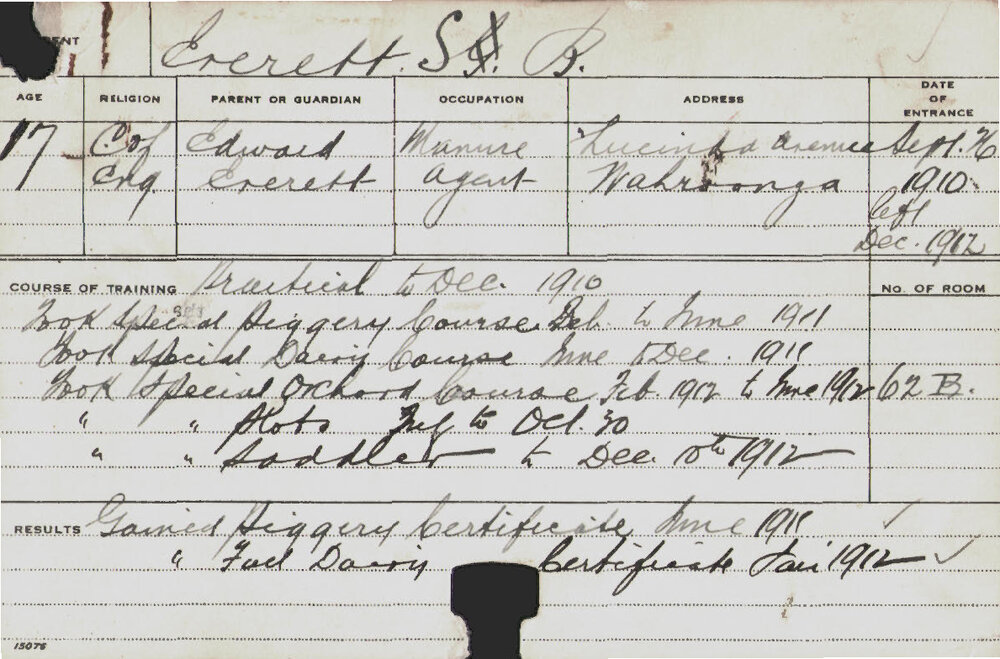 ENT Everett. S. B.
AGE RELIGION PARENT OR GUARDIAN OCCUPATION ADDRESS DATE OF ENTRANCE
17 C. of Edward Manure Lucinda Avenue Sept. 76
Eng. Everett Agent Wahroonga 1910
left
Dec. 1912
COURSE OF TRAINING Practical to Dec. 1910 No. OF ROOM
Took Special Piggery Course Feb. to June 1911
Took Special Dairy Course June to Dec. 1911
Took Special Orchard Course Feb. 1912 to June 1912 62 B.
" " Plots July to Oct. 30
" " Saddler to Dec. 10th 1912
RESULTS Gained Piggery Certificate June 1911
" Full Dairy Certificate Jan 1912
15076